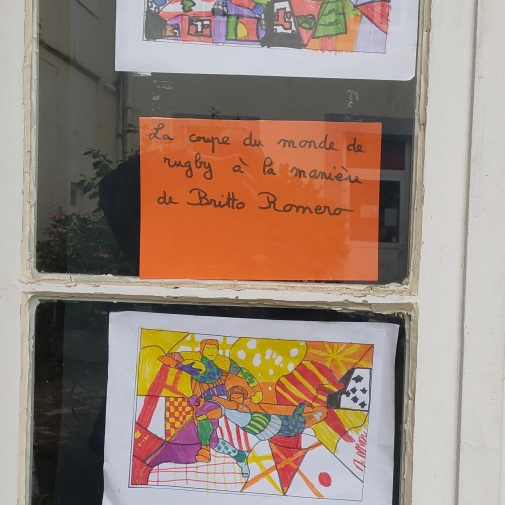 La coupe du monde de
rugby à la manière
de Britto Romero